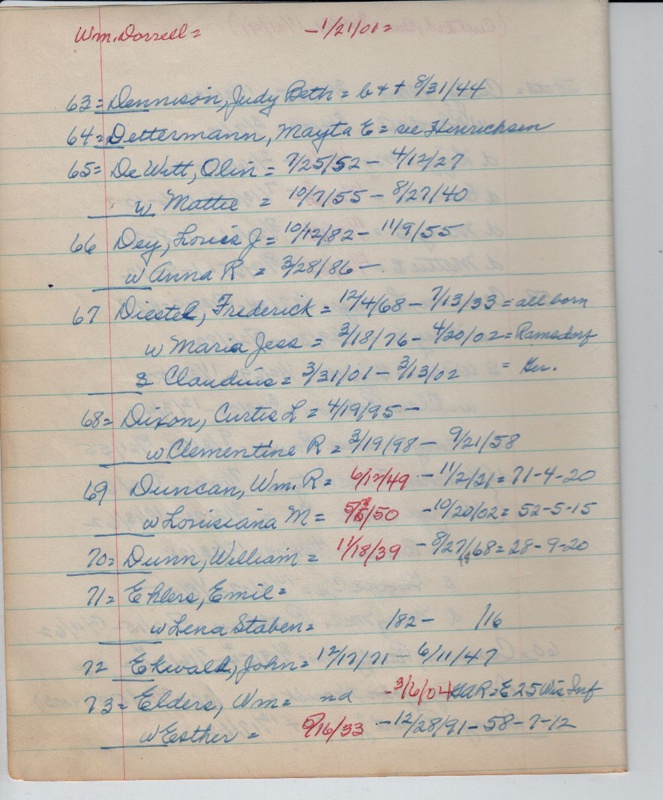 Wm. Dorrell = - 1/21/01 =
63 = Dennison, Judy Beth = b + t 8/31/44
64 = Dettermann, Mayta E = see Hinrichsen
65 = De Witt, Olin = 7/25/52 - 4/12/27
w Mattie = 10/7/55 - 8/27/40
66 Dey, Louis J = 10/12/82 - 11/9/55
w Anna R = 3/28/86 -
67 Diestel, Frederick = 12/4/68 - 7/13/33 = all born
w Maria Jess = 3/18/76 - 4/20/02 = Ramsdorf
s Claudius = 3/31/01 - 3/13/02 = Ger.
68 = Dixon, Curtis L = 4/19/95 -
w Clementine R = 3/19/98 - 9/21/58
69 Duncan, Wm. R = 6/12/49 - 11/2/21 = 71-4-20
w Louisiana M = 5/5/50 - 10/20/02 = 52-5-15
70 = Dunn, William = 11/18/39 - 8/27/68 = 28-9-20
71 = Ehlers, Emil =
w Lena Staben = /82 - /16
72 Ekwald, John = 12/17/71 - 6/11/47
73 = Elders, Wm = nd - 3/6/04 GAR = E 25 Wis Inf
w Esther = 5/16/33 - 12/28/91 - 58-7-12